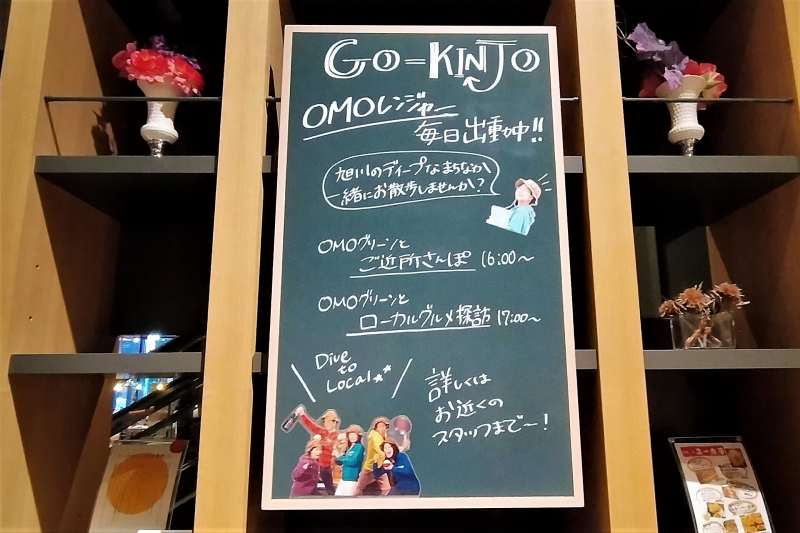 GO-KINJO
OMOレンジャー
毎日出動中!!
旭川のディープなまちなか
一緒にお散歩しませんか?
OMOグリーンと
ご近所さんぽ 16:00〜
OMOグリーンと
ローカルグルメ探訪 17:00〜
Dive
to
Local
詳しくは
お近くの
スタッフまで〜!